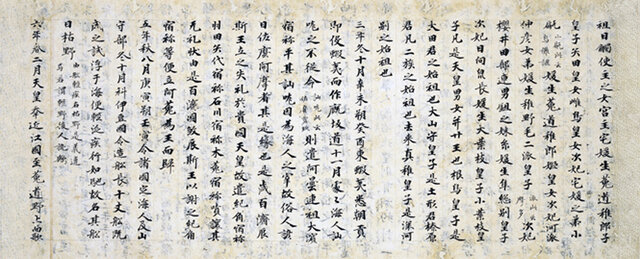 祖日觸使主之女宮主宅媛生菟道稚郎子
皇子矢田皇女雌鳥皇女次妃宅媛之弟小
甂媛小甂此云烏儺謎生菟道稚郎姬皇女次妃河派
仲彥女弟媛生稚野毛二派皇子派此云摩多次妃
櫻井田部連男鉏之妹糸媛生隼総別皇子
次妃日向泉長媛生大葉枝皇子小葉枝皇
子凡是天皇男女并廿王也根鳥皇子是
大田君之始祖也大山守皇子是土形君榛原
君凡二族之始祖也去來真稚皇子是深河
別之始祖也
三年冬十月辛未朔癸酉東蝦夷悉朝貢
即役蝦夷而作厩坂道十一月處々海人訕
哤之不從命訕哤此云佐麼賣玖則遣阿曇連祖大濱
宿祢平其訕哤因為海人之宰故俗人諺
曰佐麼阿摩者其是緣也是歲百濟辰
斯王立之失礼於貴國天皇故遣紀角宿祢
羽田矢代宿祢石川宿祢木菟宿祢嘖讓其
无礼狀由是百濟國殺辰斯王以謝之紀角
宿祢等便立阿花為王而歸
五年秋八月庚寅朔壬寅令諸國定海人及山
守部冬十月科伊豆國令造船長十丈船既
成之試浮于海便輕泛疾行如馳故名其船
曰枯野由船輕疾名枯野是義違焉若謂輕野後人訛歟
六年春二月天皇幸近江國至菟道野上而歌